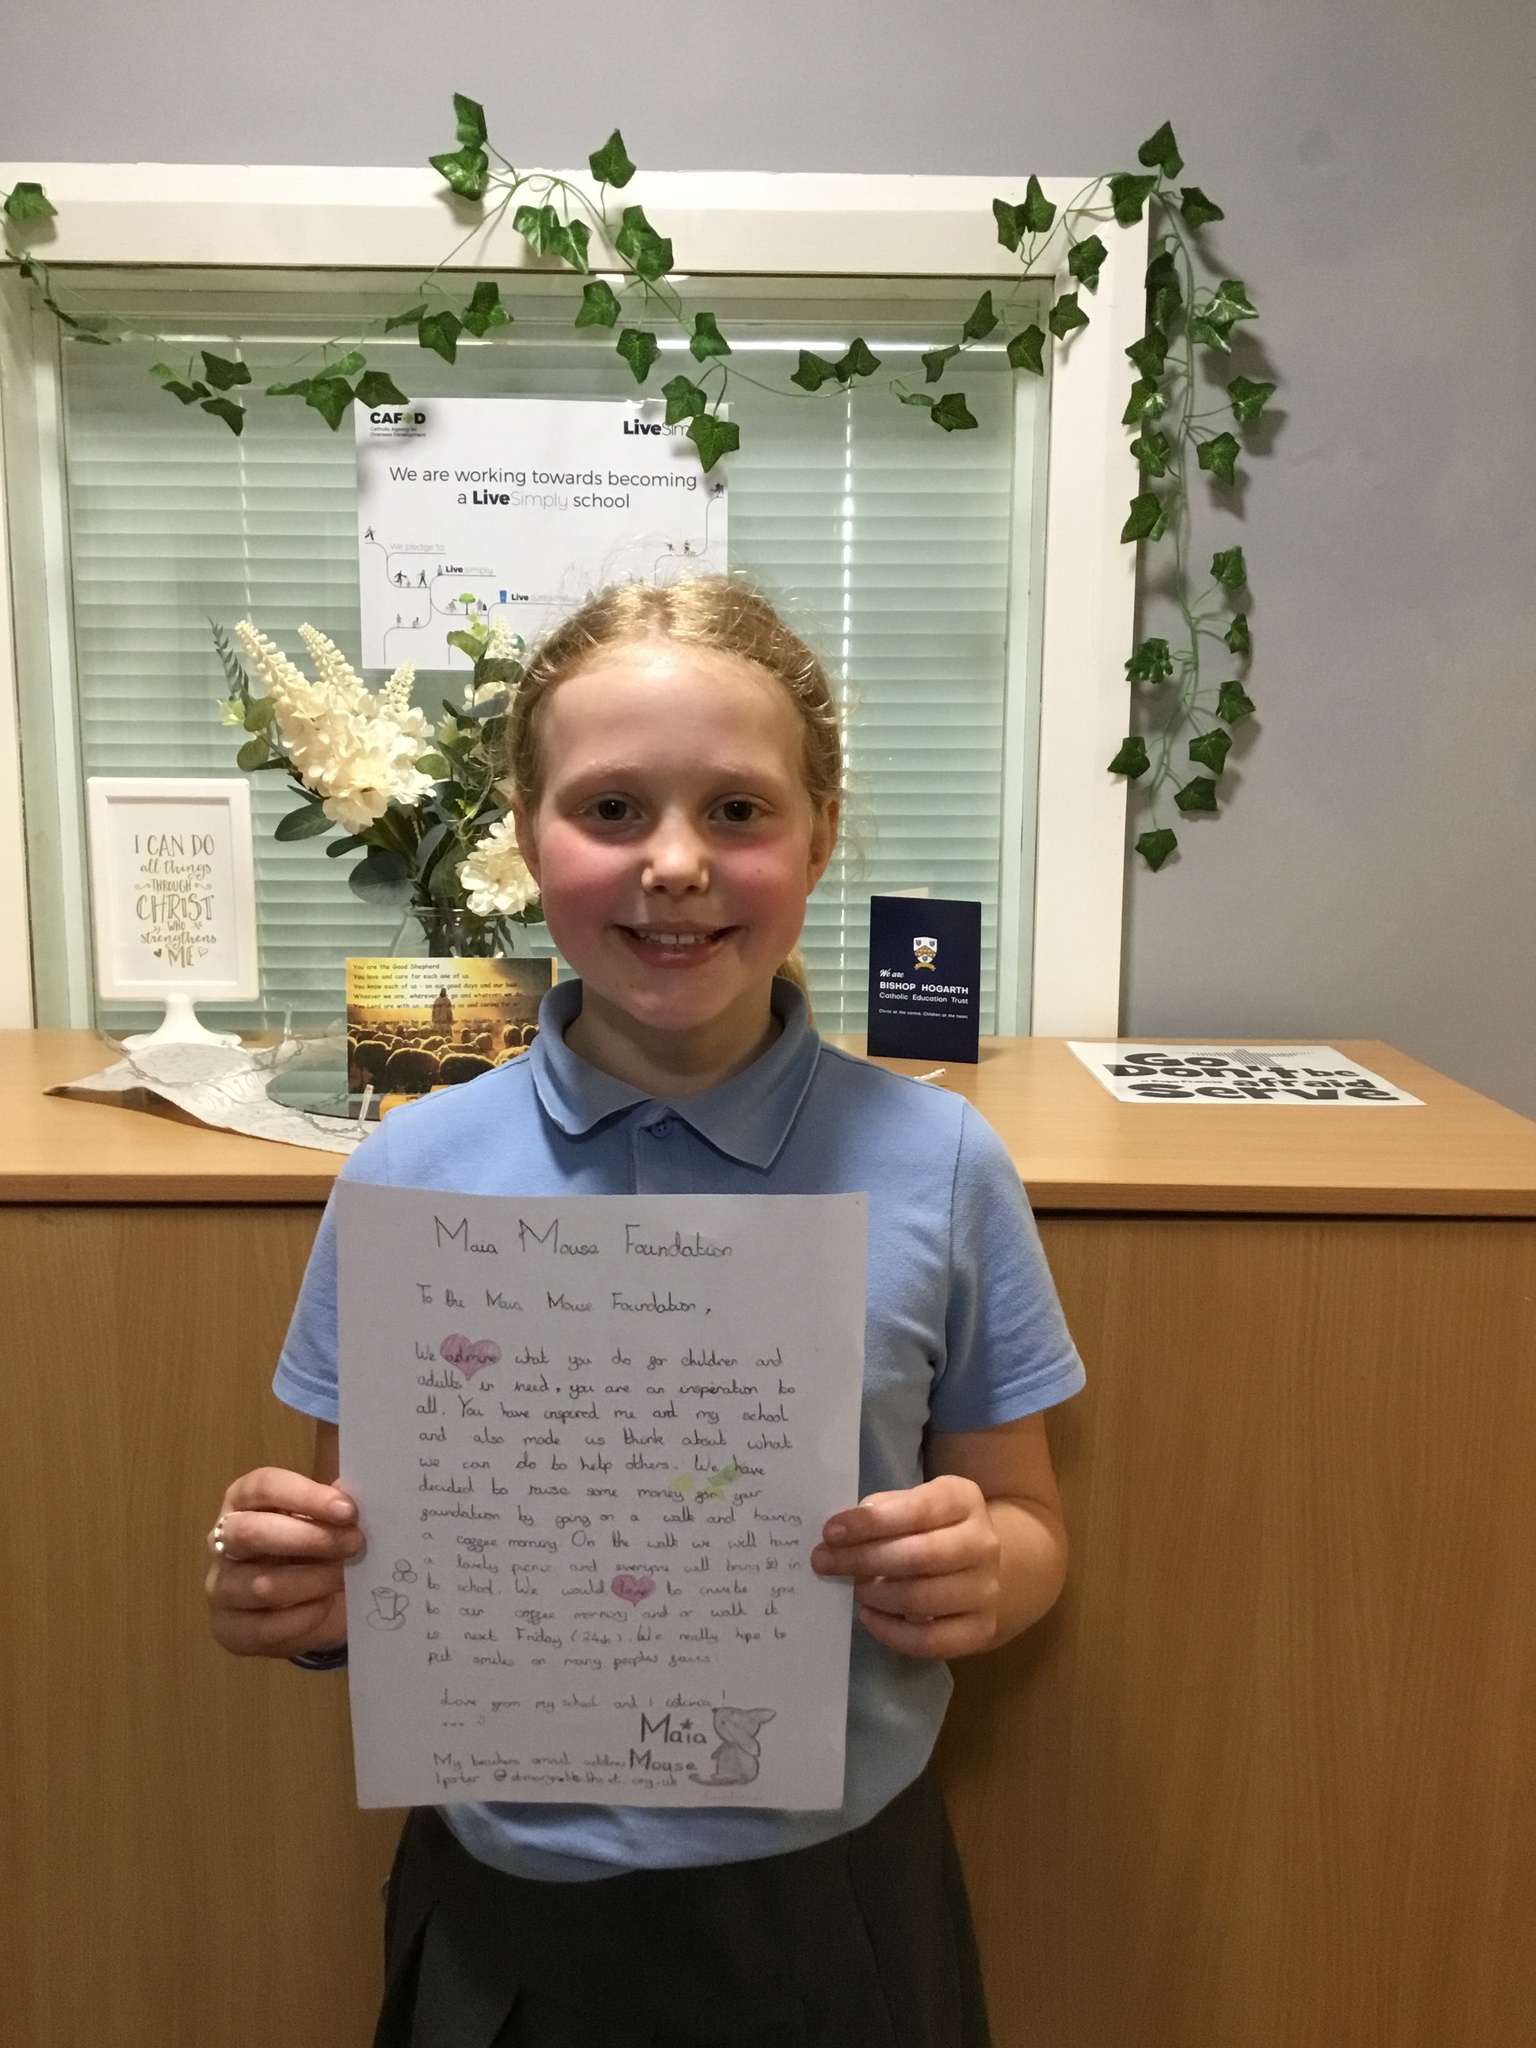 CAFOD
Catholic Agency for
Overseas Development
LiveSim
We are working towards becoming
a LiveSimply school
We pledge to:
Live simply
Live
I CAN DO
all things
THROUGH
CHRIST
WHO
strengthens
ME
You are the Good Shepherd
You love and care for each one of us
You know each of us - on our good days and our bad
Whoever we are, wherever go and whatever we
You Lord are with us; supporting us and caring for
We are
BISHOP HOGARTH
Catholic Education Trust
Christ at the centre. Children at the heart
Go
Don't be
afraid
Serve
Pope Francis
Maia Mouse Foundation
To the Maia Mouse Foundation,
We admire what you do for children and
adults in need, you are an inspiration to
all. You have inspired me and my school
and also made us think about what
we can do to help others. We have
decided to raise some money for your
foundation by going on a walk and having
a coffee morning. On the walk we will have
a lovely picnic and everyone will bring in
to school. We would love to invite you
to our coffee morning and or walk it
is next Friday (24th). We really hope to
put smiles on many peoples faces
Love from my school and I
Maia
Mouse
My teachers email address